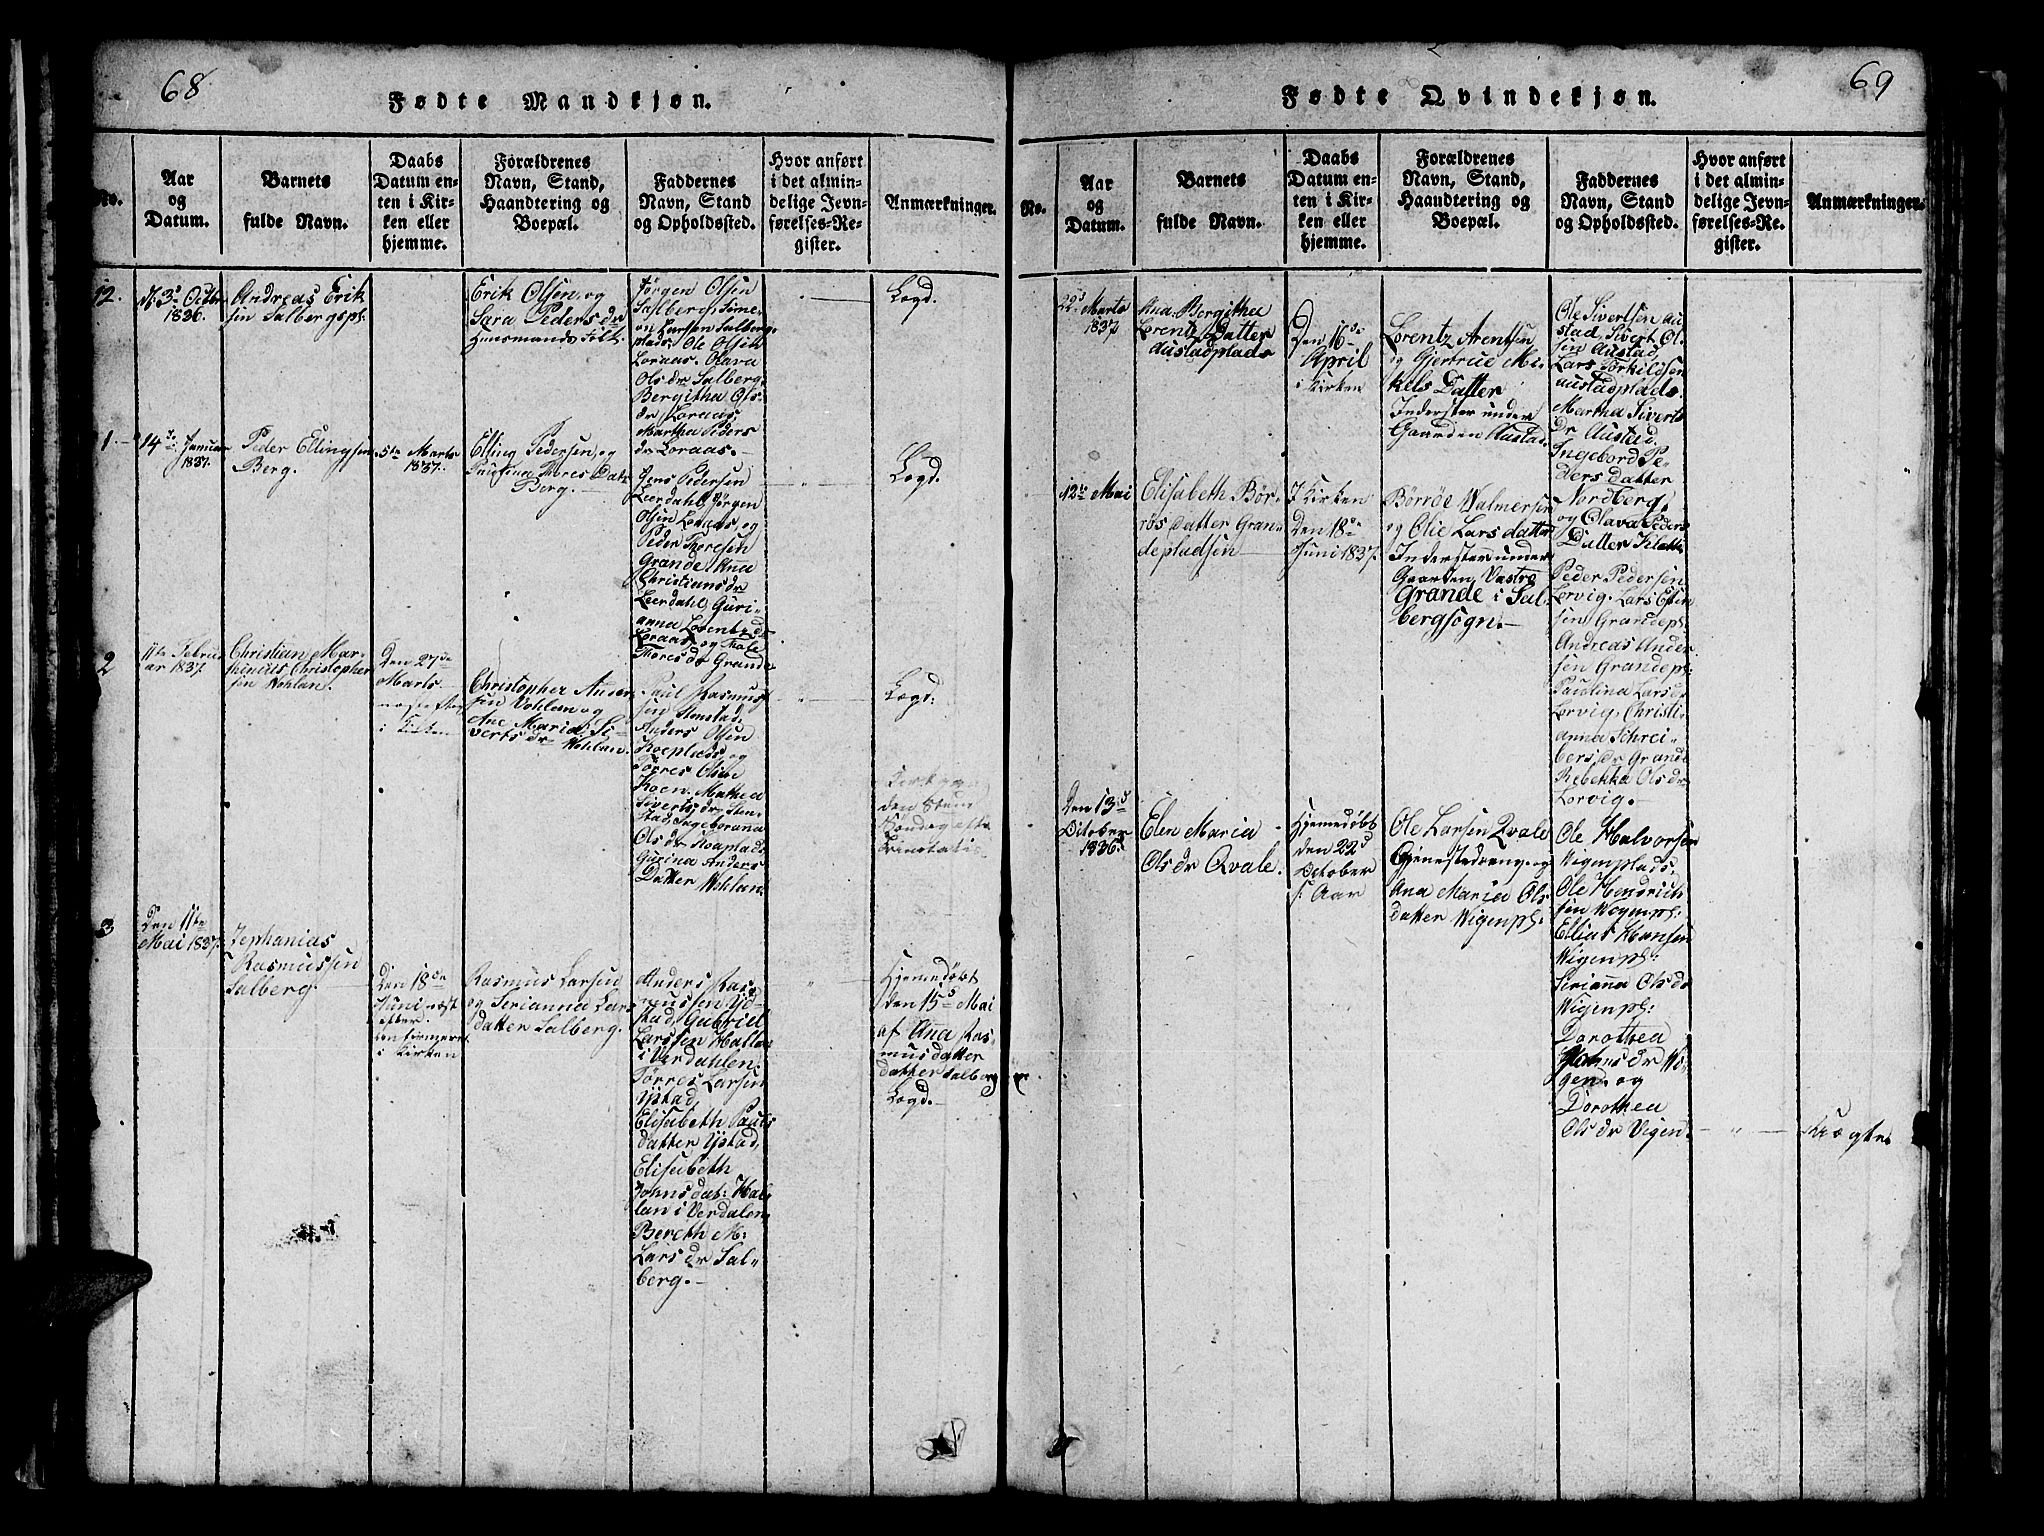 68
Fødte Mandkjøn.
No.
Aar
og
Datum.
Barnets
fulde Navn.
Daabs
Datum en-
ten i Kir-
ken eller
hjemme.
Forældrenes
Navn, Stand,
Haandtering og
Boepæl.
Faddernes
Navn, Stand
og Opholdssted.
Hvor anført
i det almin-
delige Jevn-
førelses-Re-
gister.
Anmærkninger.
12.
d. 3d Octbr
1836.
Andreas Erik
sen Salbergspl.
Erik Olsen og
Sara Peders dr
Huusmands Folk.
Jørgen Olsen
Salberg, Sime-
on Larsen Salberg
plads. Ole Olsen
Loraas. Olava
Ols dr Salberg.
Bergitha Ols
dr Loraas.
Martha Peders
dr Loraas.
Logd.
1
14de Januar
1837.
Peder Ellingsen
Berg.
5te Marts
1837.
Elling Pedersen og
Paulina Thores Datr
Berg.
Jens Pedersen
Leerdahl, Jørgen
Olsen Loraas, og
Peder Thoresen
Grande, Ana
Christians dr
Leerdahl, Guri-
anna Lorents dr
Loraas og
Thores dr Grande
Logd.
2
11te Febru
ar 1837.
Christian Mar-
Christopher
sen Wohlan.
Den 27de
Marts
næst efter
i Kirken
Christopher Ander
sen Vohlan og
Ane Maria Si-
verts dr Wohlan.
Paul Rasmus
sen Stenstad,
Anders Olsen
Koeplads og
Torres Olsen
Koen, Mathea
Siverts dr Sten-
stad, Ingeborana
Ols dr Koeplads
Gurina Anders
Datter Wohlan.
Logd:
3
Den 11te
Mai 1837.
Zephanias
Rasmussen
Salberg.
Den 18de
Juni næst
efter
i Kirken
Rasmus Larsen
og Serianna Lars
datter Salberg.
Anders Ras-
mussen Yd-
stad, Gabriel
Larssen Hallan
i Verdahlen.
Tørres Larsen
Ystad,
Elisabeth Pauls
datter Ystad,
Elisabeth
Johns dat: Hal-
lan i Verdalen,
Bereth M:
Lars dr Sal-
berg.
Hjemedøbt
den 15d Mai
af Ana Ras
mus datter
datter Salberg
Logd.
69
Fødte Qvindekjøn.
No.
Aar
og
Datum.
Barnets
fulde Navn.
Daabs
Datum en-
ten i Kir-
ken eller
hjemme.
Forældrenes
Navn, Stand,
Haandtering og
Boepæl.
Faddernes
Navn, Stand
og Opholdssted.
Hvor anført
i det almin-
delige Jevn-
førelses-Re-
gister.
Anmærkninger.
22d Marts
1837
Ana Bergitha
Lorentz Datter
Austadplads
Den 16de
April
i Kirken
Lorentz Arentsen
og Gjertrue Mi-
kels Datter
Inderster under
Gaarden Austad.
Ole Sivertsen Au
stad, Sivert Ol-
sen Austad,
Lars Torkildsen
austadplads.
Martha Siverts
Dr Austad.
Ingebord Pe-
ders datter
Nordberg,
og Olava Peders
Datter
12te Mai
Elisabeth Bør-
røs datter Gran-
depladsen
I Kirken
Den 18de
Juni 1837.
Børrøe Walmersen
og Olie Lars datter
Inderster under
Gaarden Vestre
Grande i Sal-
bergsogn.
Peder Pedersen
Lorvig. Lars Esten
sen Grandepl:
Andreas Ander
sen Grandepl:
Paulina Lars dr
Lorvig, Christi-
anna Schrei-
bers dr Grande
Rebekka Ols dr
Lorvig.
Den 13d
October
1836.
Elen Maria
Ols dr Qvale.
Hjemedøbt
den 22d
October
s. Aar
Ole Larsen Qvale
Gjenestedreng. og
Ana Maria Ols
datter Wigenpl:
Ole Halvorsen
Wigenplads.
Ole Hendrich
sen Wigenpl:
Elias Hansen
Wigenpl:
Serianna Ols dr
Wigenpl:
Dorothea
Johns dr Wi-
gen og
Dorothea
Ols dr Vigen.